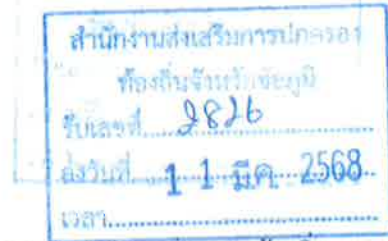 สำนักงานส่งเสริมการปกครอง
ท้องถิ่นจังหวัดชัยภูมิ
รับเลขที่ 2826
ลงวันที่ 11 มีค. 2568
เวลา